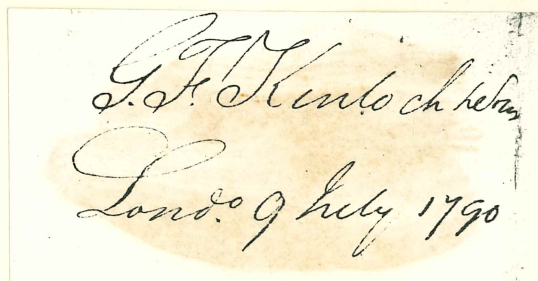 G. F. Kinloch
Londº. 9 July 1790